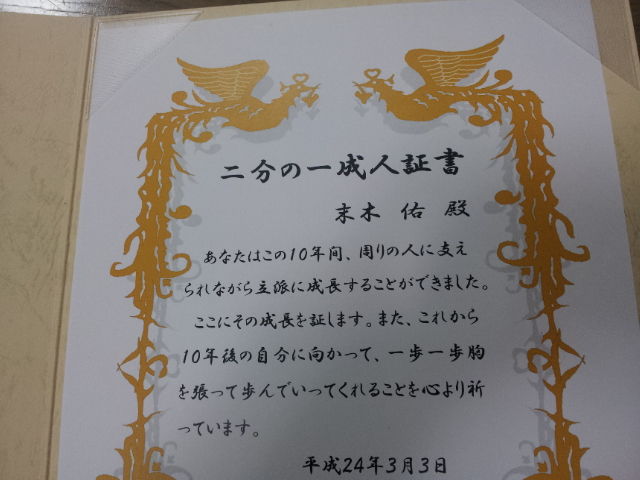 二分の一成人証書
末木 佑 殿
あなたはこの10年間、周りの人に支え
られながら立派に成長することができました。
ここにその成長を証します。また、これから
10年後の自分に向かって、一歩一歩胸
を張って歩んでいってくれることを心より祈
っています。
平成24年3月3日